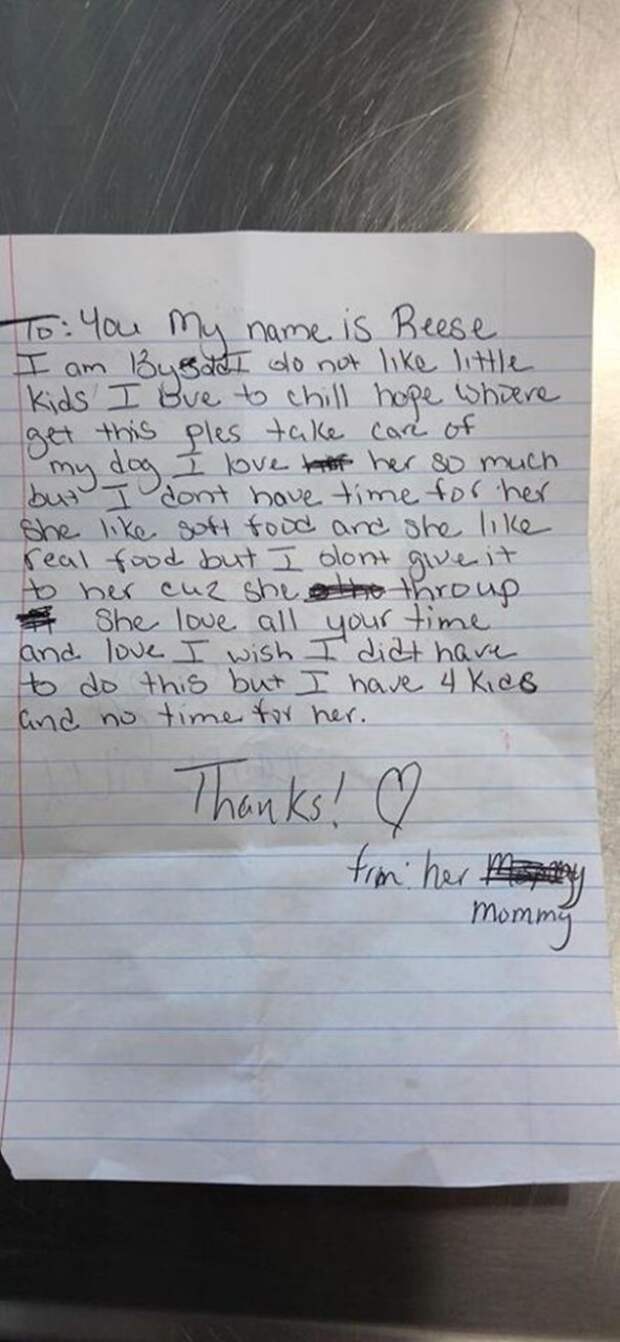 To: You My name is Reese
I am 13 I do not like little
kids I love to chill hope whoere
get this ples take care of
my dog I love her so much
but I dont have time for her
she like soft food and she like
real food but I dont give it
to her cuz she throup
she love all your time
and love I wish I didt have
to do this but I have 4 kids
and no time for her.
Thanks! ♡
frm: her
mommy